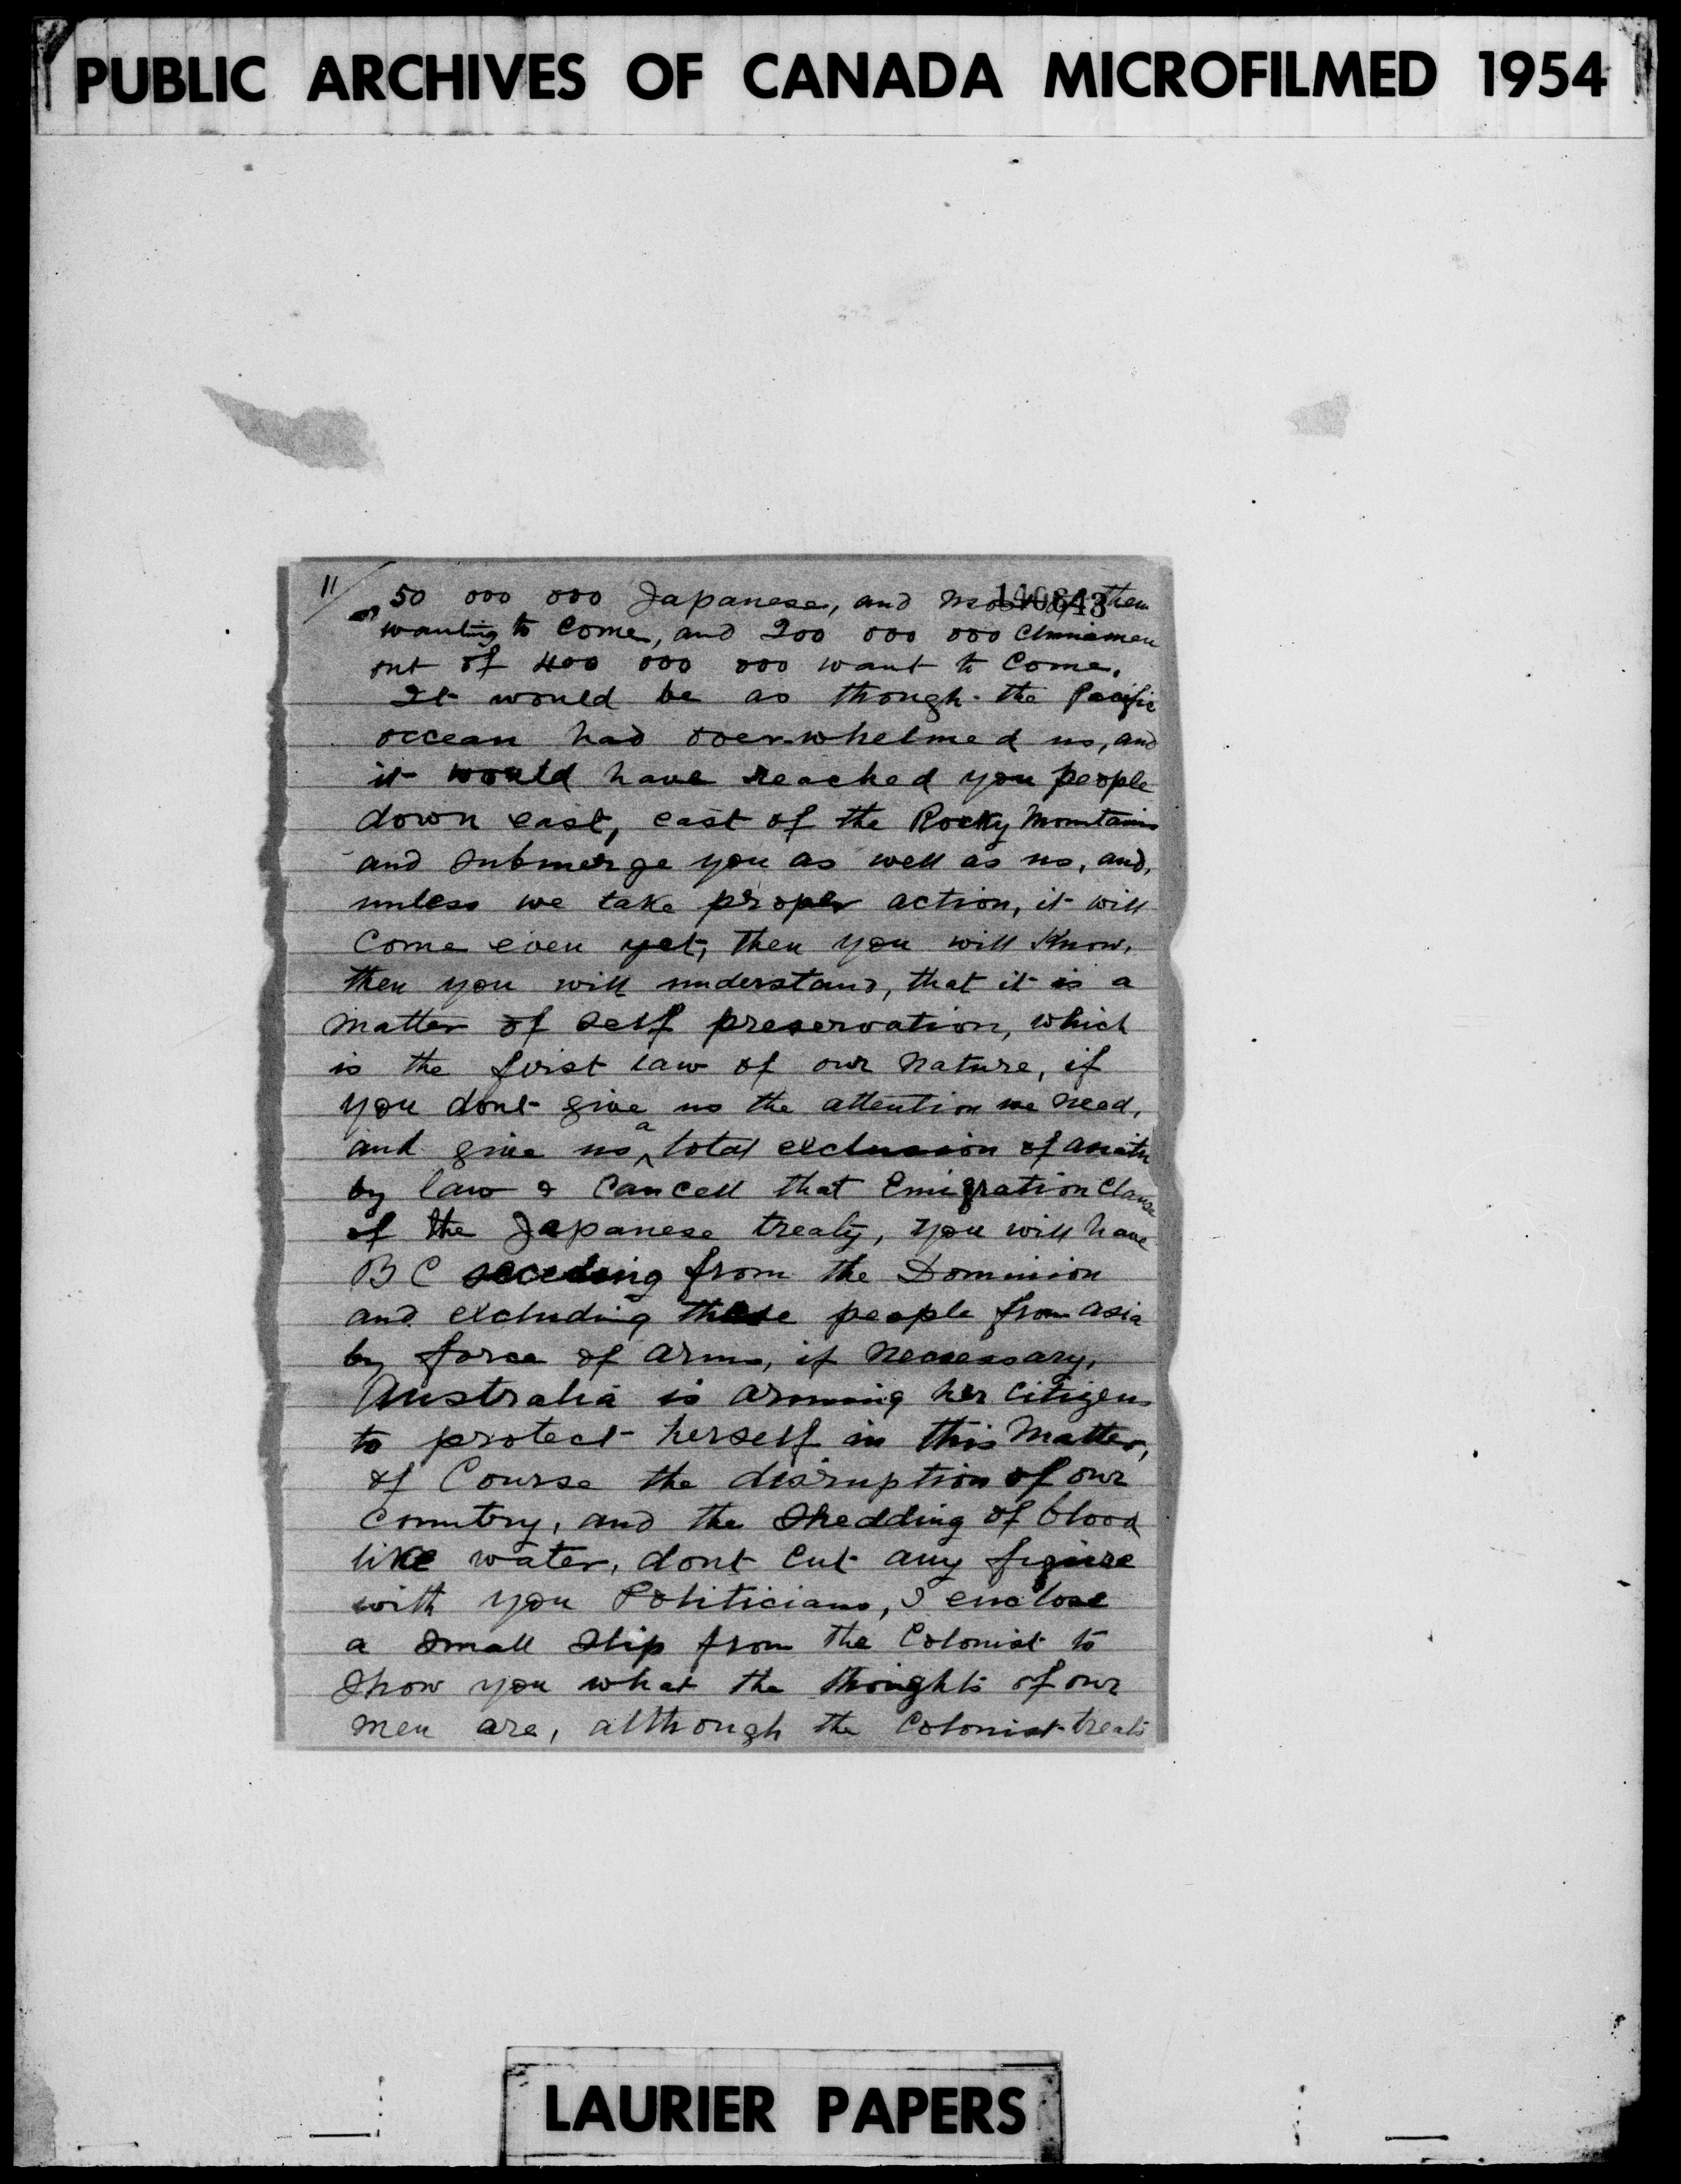 PUBLIC ARCHIVES OF CANADA MICROFILMED 1954
11/ 50 000 000 Japanese, and most of them
140643
wanting to come, and 200 000 000 Chinamen
out of 400 000 000 want to come.
It would be as though the Pacific
occean had overwhelmed us, and
it would have reached you people
down east, east of the Rocky Mountains
and submerge you as well as us, and,
unless we take proper action, it will
come even yet, then you will know,
then you will understand, that it is a
matter of self preservation, which
is the first law of our nature, if
you dont give us the attention we need,
and give us a total exclusion of asiatic
by law & cancell that Emigration Clause
of the Japanese treaty, you will have
B C seceeding from the Dominion
and excluding these people from asia
by force of arms, if necessary,
Australia is arming her citizens
to protect herself in this matter,
of Course the disruption of our
country, and the shedding of blood
like water, dont cut any figure
with you Politicians, I enclose
a small slip from the Colonist to
show you what the thoughts of our
men are, although the Colonist treats
LAURIER PAPERS